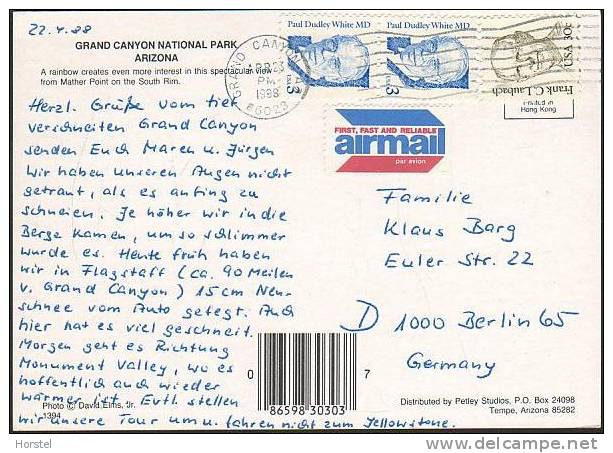 22.4.88
GRAND CANYON NATIONAL PARK
ARIZONA
A rainbow creates even more interest in this spectacular view
from Mather Point on the South Rim.
Herzl. Grüße vom tief
verschneiten Grand Canyon
senden Euch Maren u. Jürgen
Wir haben unseren Augen nicht
getraut, als es anfing zu
schneien. Je höher wir in die
Berge kamen, um so schlimmer
wurde es. Heute früh haben
wir in Flagstaff (ca. 90 Meilen
v. Grand Canyon) 15cm Neu-
schnee vom Auto gefegt. Auch
hier hat es viel geschneit.
Morgen geht es Richtung
Monument Valley, wo es
hoffentlich auch wieder
wärmer ist. Evtl. stellen
wir unsere Tour um u. fahren nicht zum Yellowstone.
Photo © David Elms, Jr.
1394
GRAND CANYON
APR 23
PM
1988
86023
Paul Dudley White MD
USA 3
Paul Dudley White MD
USA 3
Frank C. Laubach
USA 30c
Printed in
Hong Kong
FIRST, FAST AND RELIABLE
airmail
par avion
Familie
Klaus Barg
Euler Str. 22
D 1000 Berlin 65
Germany
0 86598 30303 7
Distributed by Petley Studios, P.O. Box 24098
Tempe, Arizona 85282
Horstel
www.delcampe.net